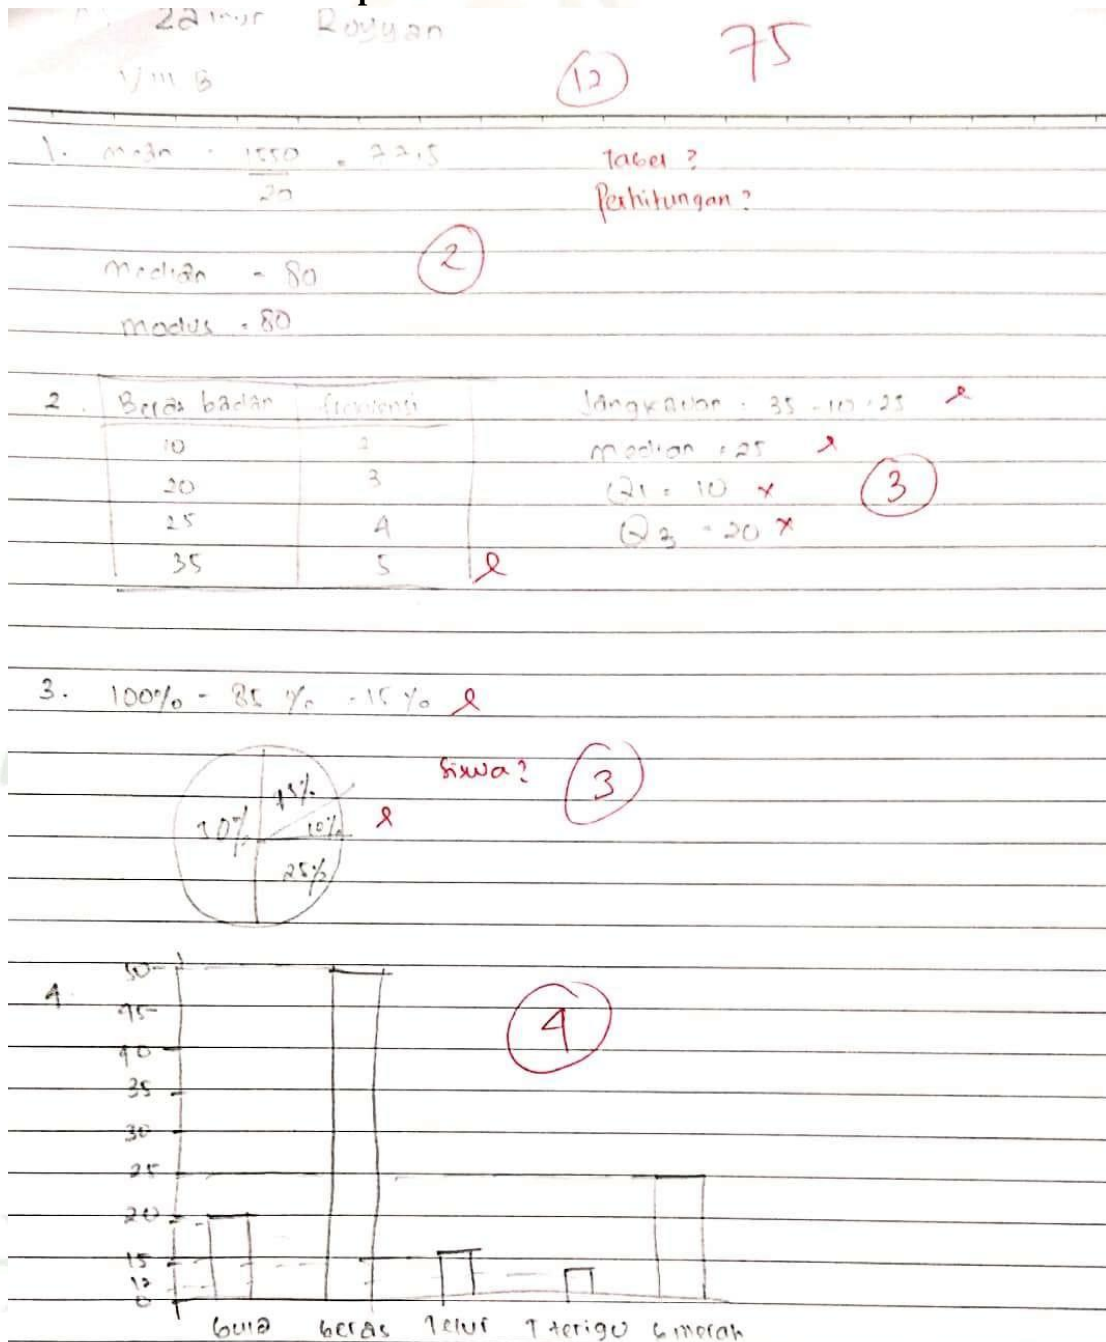 Royyan
VIII B
12
75
1. mean = 1550 = 77,5
20
Tabel ?
Perhitungan ?
median = 80
2
modus = 80
2. Berat badan frekuensi
10 2
20 3
25 4
35 5
Jangkauan = 35 - 10 = 25
median = 25
Q1 = 10 x
Q3 = 20 x
3
3. 100% - 85% = 15%
Siswa ?
3
15%
10%
25%
4.
4
50
45
40
35
30
25
20
15
12
0
Gula beras Telur T terigu b merah